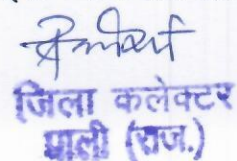 जिला कलेक्टर
पाली (राज.)